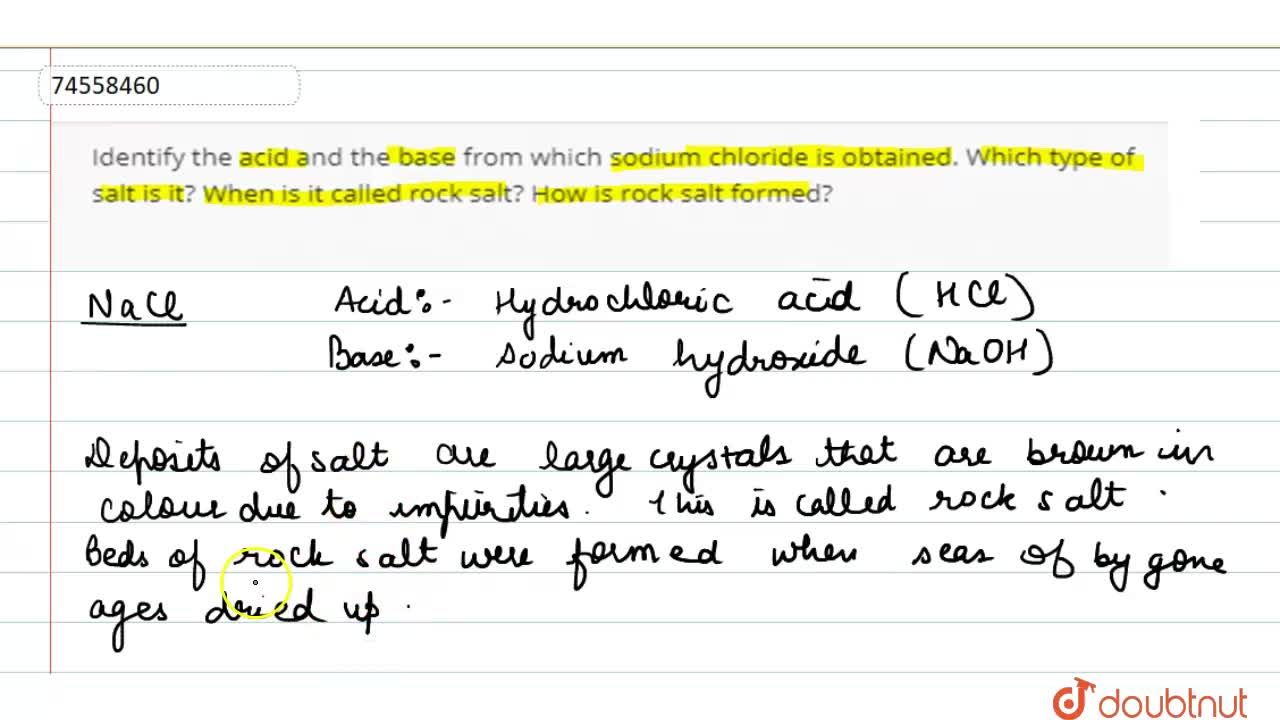 74558460
Identify the acid and the base from which sodium chloride is obtained. Which type of
salt is it? When is it called rock salt? How is rock salt formed?
NaCl Acid:- Hydrochloric acid (HCl)
Base:- sodium hydroxide (NaOH)
Deposits of salt are large crystals that are brown in
colour due to impurities. This is called rock salt.
Beds of rock salt were formed when seas of by gone
ages dried up.
doubtnut